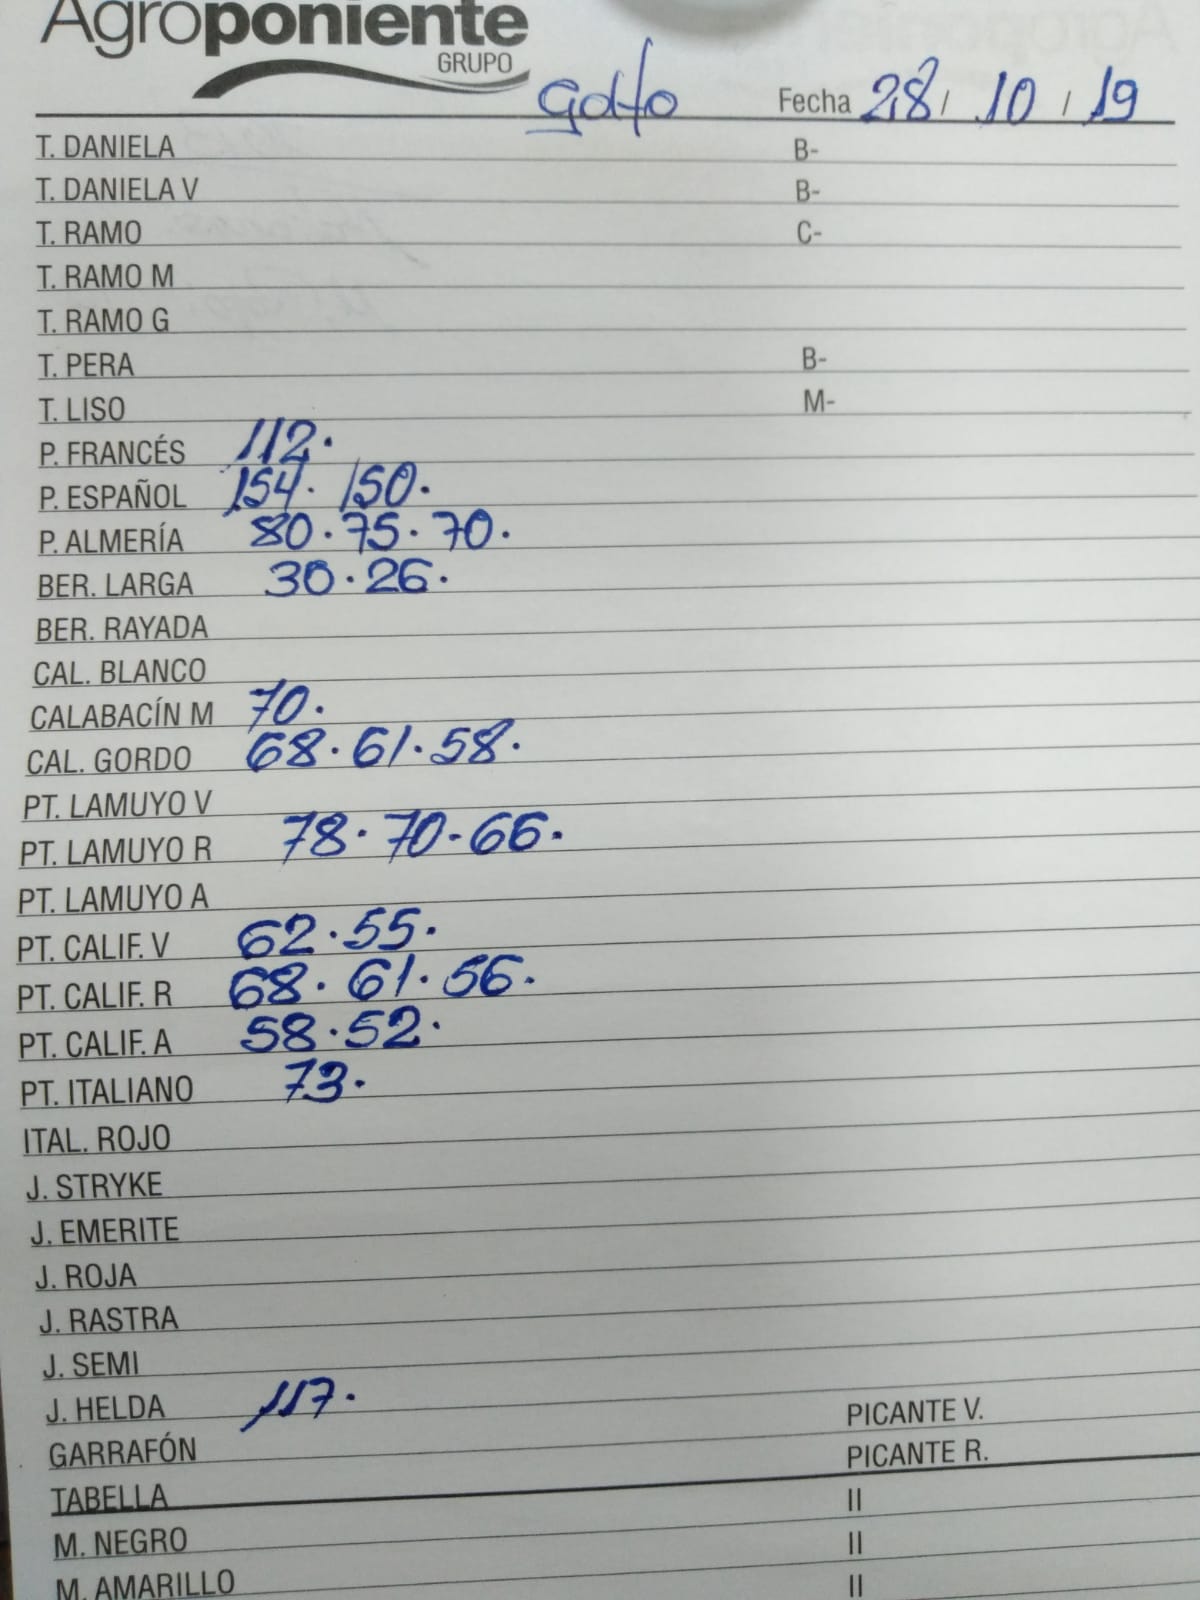 Agroponiente
GRUPO
Golfo Fecha 28 / 10 / 19
T. DANIELA B-
T. DANIELA V B-
T. RAMO C-
T. RAMO M
T. RAMO G
T. PERA B-
T. LISO M-
P. FRANCÉS 112.
P. ESPAÑOL 154. 150.
P. ALMERÍA 80. 75. 70.
BER. LARGA 30. 26.
BER. RAYADA
CAL. BLANCO
CALABACÍN M 70.
CAL. GORDO 68. 61. 58.
PT. LAMUYO V
PT. LAMUYO R 78. 70. 66.
PT. LAMUYO A
PT. CALIF. V 62. 55.
PT. CALIF. R 68. 61. 56.
PT. CALIF. A 58. 52.
PT. ITALIANO 73.
ITAL. ROJO
J. STRYKE
J. EMERITE
J. ROJA
J. RASTRA
J. SEMI
J. HELDA 117. PICANTE V.
GARRAFÓN PICANTE R.
TABELLA II
M. NEGRO II
M. AMARILLO II